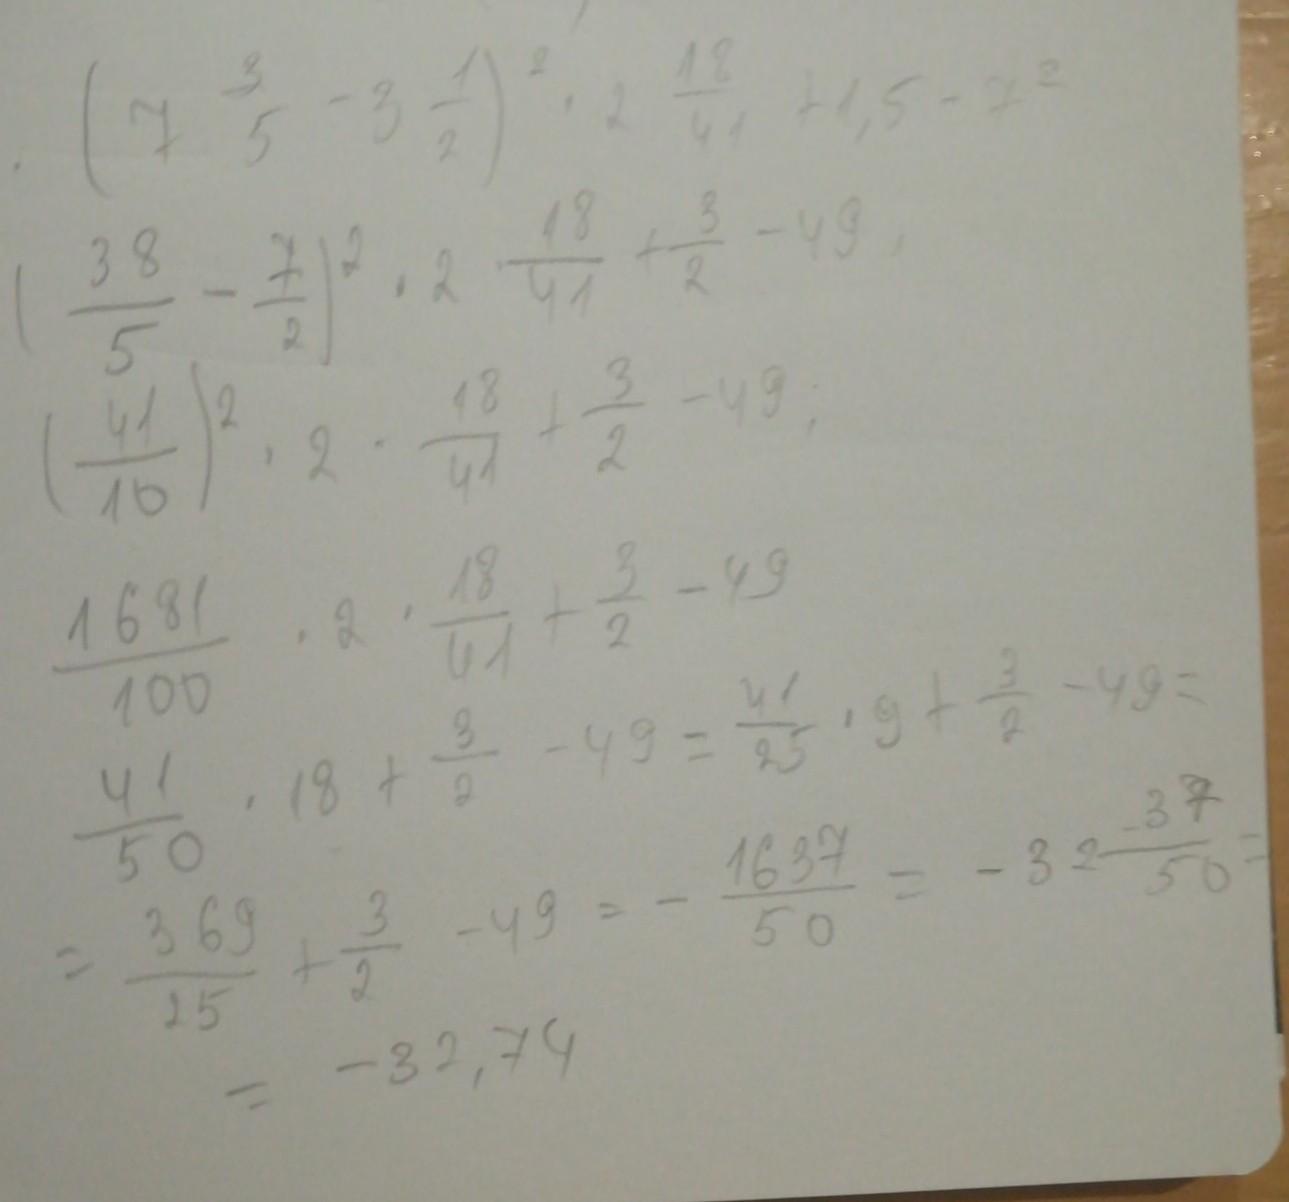 (7 3/5 - 3 1/2)² · 2 18/41 + 1,5 - 7²
(38/5 - 7/2)² · 2 18/41 + 3/2 - 49;
(41/10)² · 2 · 18/41 + 3/2 - 49;
1681/100 · 2 · 18/41 + 3/2 - 49
41/50 · 18 + 3/2 - 49 = 41/25 · 9 + 3/2 - 49 =
= 369/25 + 3/2 - 49 = - 1637/50 = - 32 37/50 =
= -32,74